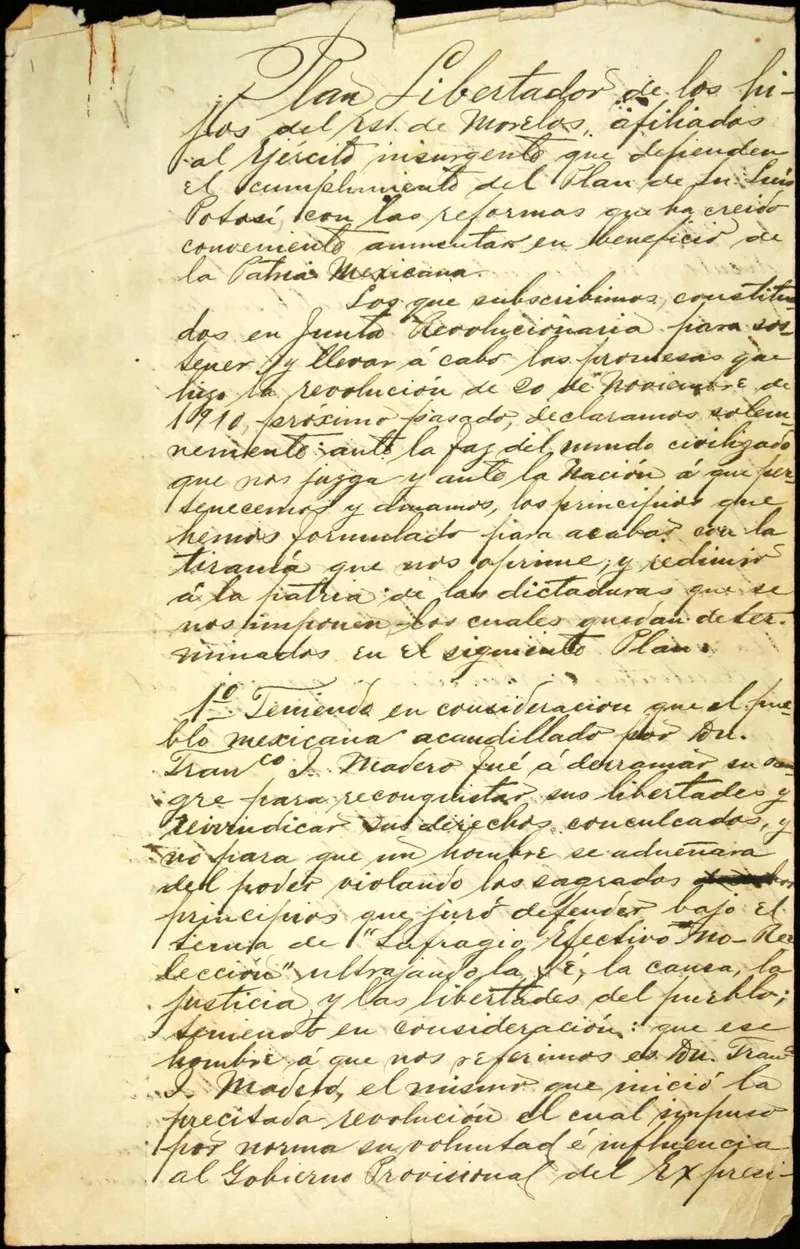 Plan Libertador de los hi-
jos del Est. de Morelos, afiliados
al Ejército insurgente que defienden
el cumplimiento del Plan de Sn. Luis
Potosí, con las reformas que ha creido
conveniente aumentar en beneficio de
la Patria Mexicana.
Los que subscribimos, constitui-
dos en Junta Revolucionaria para sos-
tener y llevar á cabo las promesas que
hizo la revolución de 20 de Noviembre de
1910, próximo pasado, declaramos solem-
nemente ante la faz del mundo civilizado
que nos juzga y ante la Nación á que per-
tenecemos y amamos, los principios que
hemos formulado para acabar con la
tiranía que nos oprime, y redimir
á la patria de las dictaduras que se
nos imponen los cuales quedan deter-
minados en el siguiente Plan.
1º Teniendo en consideracion que el pue-
blo mexicano acaudillado por Dn.
Franco I. Madero fué á derramar su san-
gre para reconquistar sus libertades y
reivindicar sus derechos conculcados, y
no para que un hombre se adueñara
del poder violando los sagrados
principios que juró defender bajo el
tema de "Sufragio Efectivo No-Ree-
lección" ultrajando la fé, la causa, la
justicia y las libertades del pueblo;
teniendo en consideración: que ese
hombre á que nos referimos es Dn. Franco
I. Madero, el mismo que inició la
precitada revolución el cual impuso
por norma su voluntad é influencia
al Gobierno Provisional del Expresi-